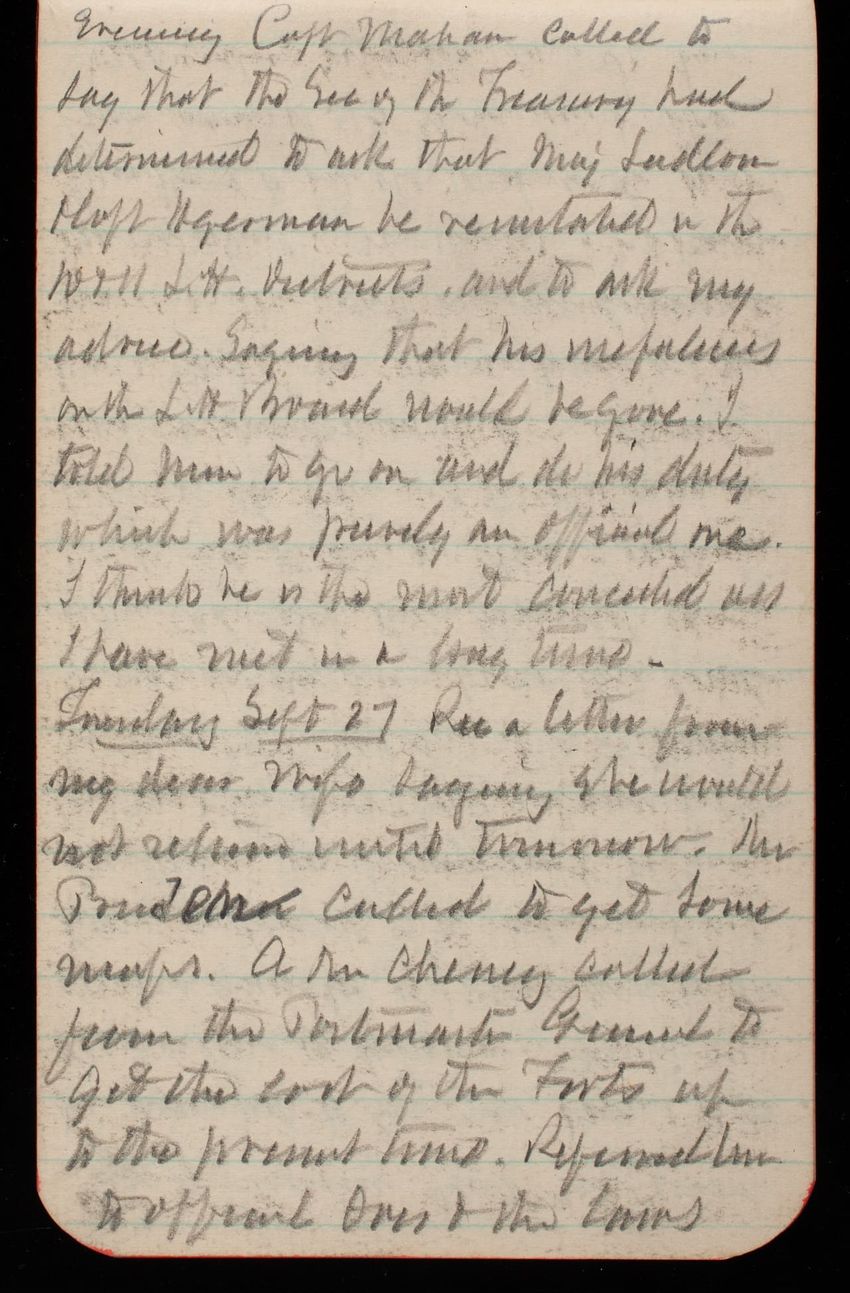 Evening Capt Mahan called to
say that the Sec of the Treasury had
determined to ask that Maj Ludlow
& Capt Hgerman be reinstated in the
10 & 11 L.H. Districts. and to ask my
advice. Saying that his usefulness
on the L.H. Board would be gone. I
told him to go on and do his duty
which was purely an official one.
I think he is the most conceited ass
I have met in a long time -
Tuesday Sept 27 Rec a letter from
my dear Wife saying she would
not return until tomorrow. Mr
called to get some
maps. A Mr Cheney called
from the Postmaster General to
get the cost of the Forts up
to the present time. Referred him
to official Docs & the laws